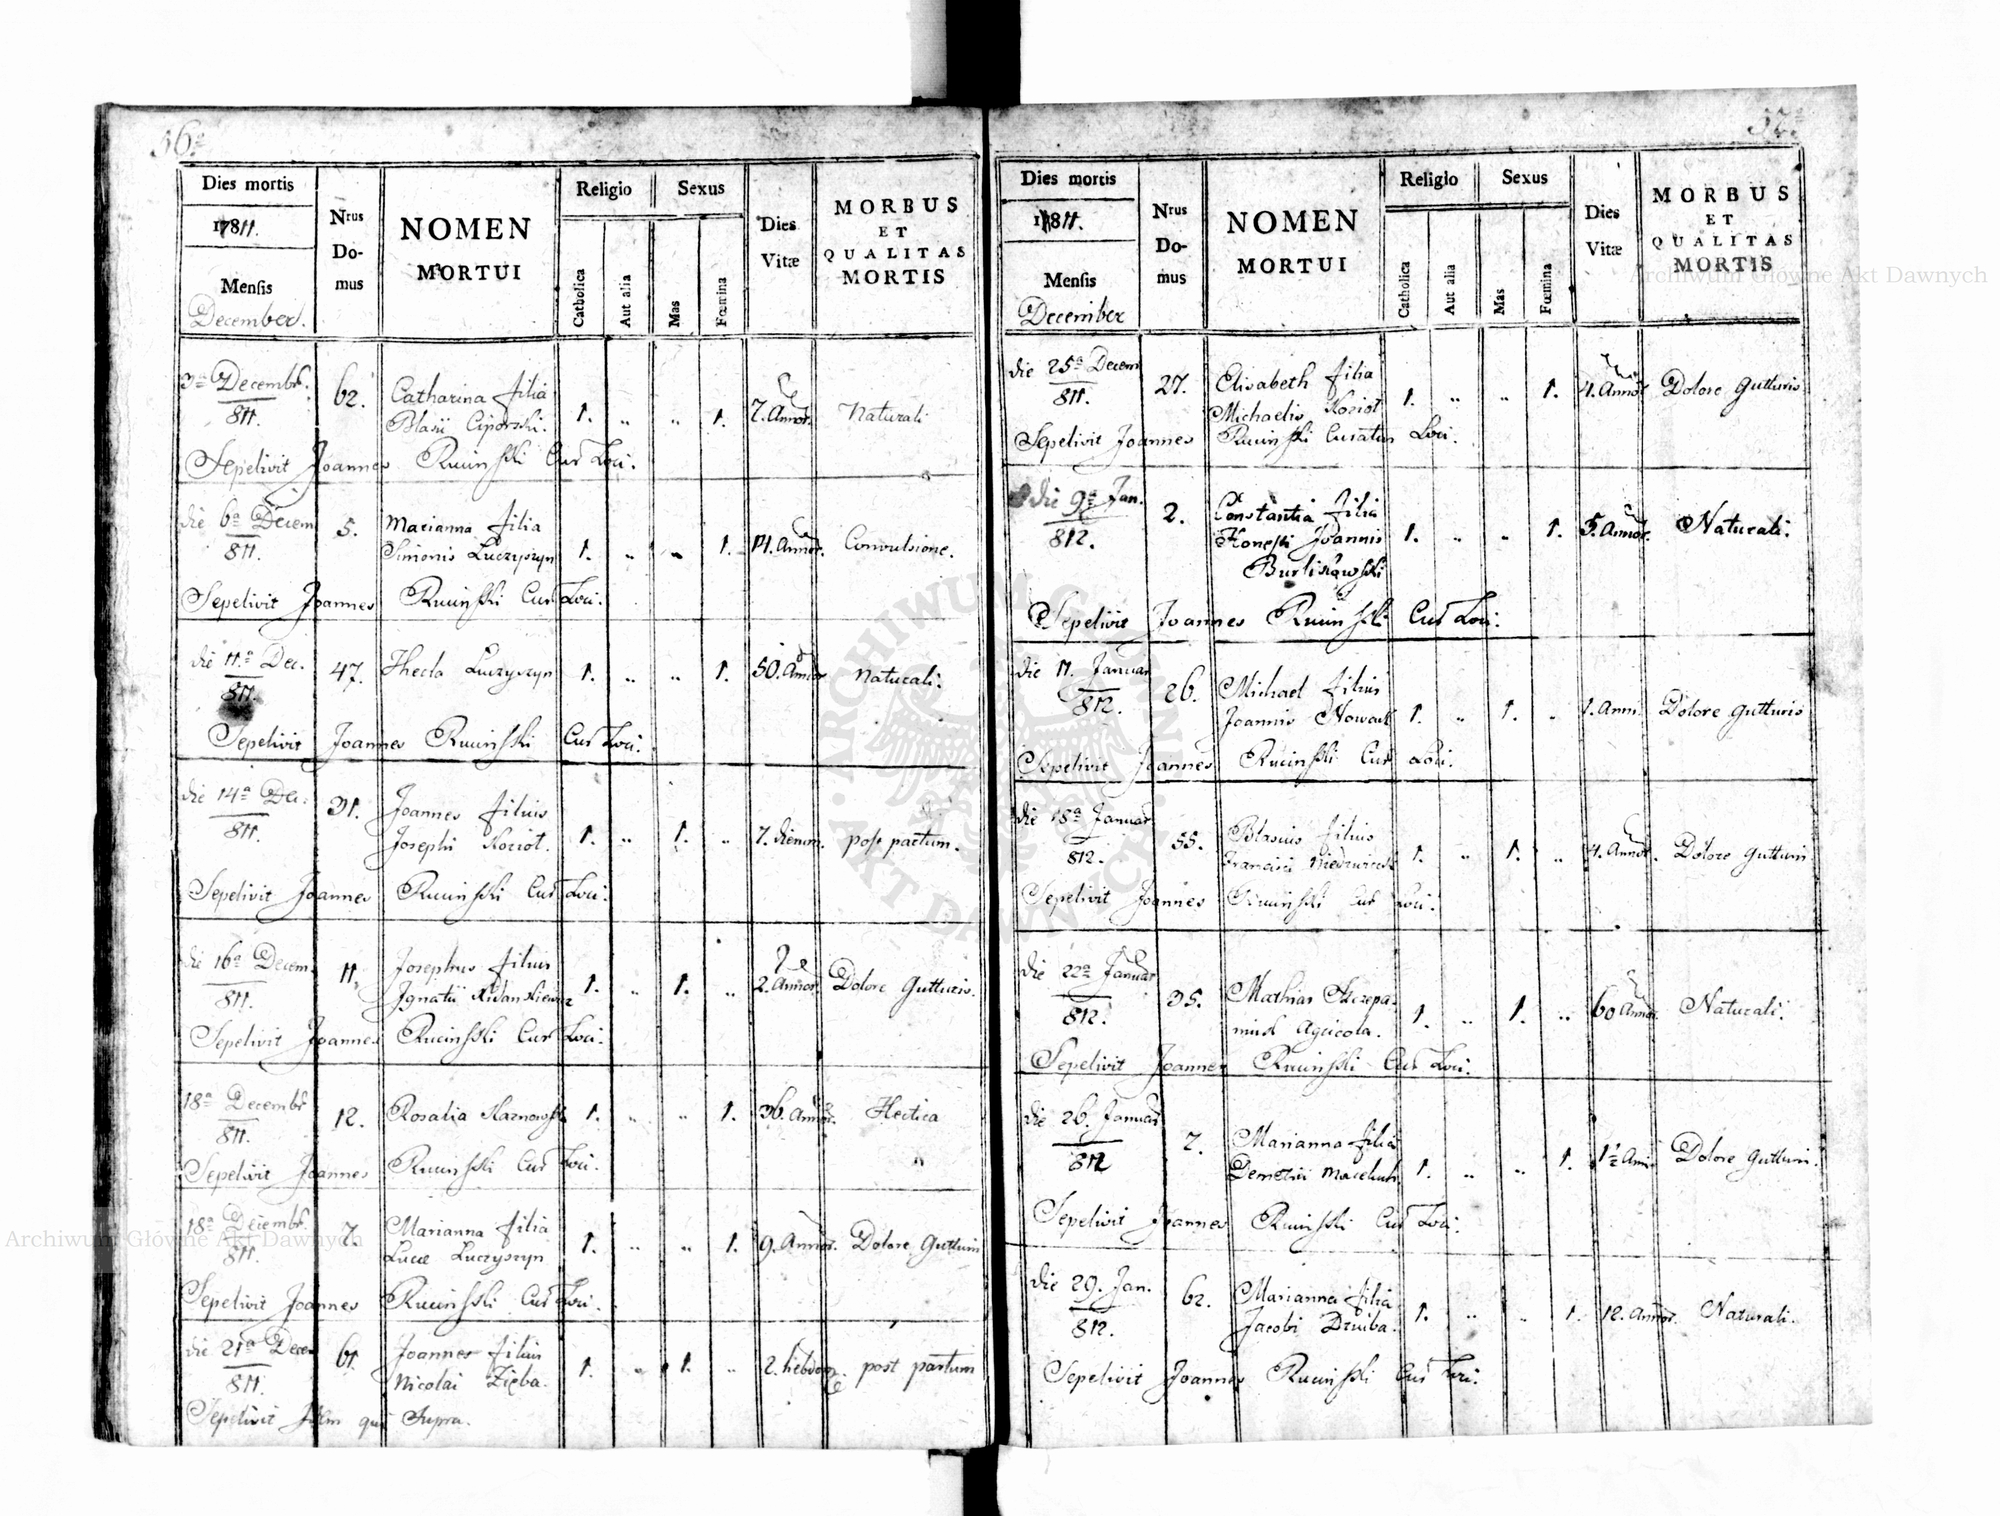 36ª
Dies mortis
Nrus Domus
NOMEN MORTUI
Religio
Sexus
Dies Vitæ
MORBUS ET QUALITAS MORTIS
17811.
Mensis
Catholica
Aut alia
Mas
Fœmina
December.
3ª Decembr. 62. Catharina filia 1. „ „ 1. 7. Annor. Naturali
811. Blasii
Sepelivit Joannes Ruciński Cur Loci.
die 6ª Decem 5. Marianna filia
811. Simonis Luczyszyn 1. „ „ 1. Annor. Convulsione.
Sepelivit Joannes Ruciński Cur Loci.
die 11.ª Dec. 47. Thecla Luczyszyn 1. „ „ 1. 50. Annor naturali.
811.
Sepelivit Joannes Ruciński Cur Loci.
die 14ª Dec. 31. Joannes filius
811. Josephi Kozioł. 1. „ 1. „ 7. dierum. post partum.
Sepelivit Joannes Ruciński Cur Loci.
die 16ª Decem. 11. Josephus filius
811. Ignatii 1. „ 1. „ 2. Annor. Dolore Gutturis.
Sepelivit Joannes Ruciński Cur Loci.
18ª Decembr 12. Rosalia 1. „ „ 1. 36. Annor. Hectica
811.
Sepelivit Joannes Ruciński Cur Loci.
18ª Decembr. 7. Marianna filia
811. Lucæ Luczyszyn 1. „ „ 1. 9. Annor. Dolore Gutturis
Sepelivit Joannes Ruciński Cur Loci.
die 21ª Decem 61. Joannes filius
811. Nicolai Zięba. 1. „ 1. „ 2. hebdom. post partum
Sepelivit qui Supra.
37ª
Dies mortis
Nrus Domus
NOMEN MORTUI
Religio
Sexus
Dies Vitæ
MORBUS ET QUALITAS MORTIS
1811.
Mensis
Catholica
Aut alia
Mas
Fœmina
December
die 25ª Decem 27. Elisabeth filia 1. „ „ 1. 4. Annor Dolore gutturis
811. Michaelis Kozioł
Sepelivit Joannes Ruciński Curatus Loci.
die 9ª Jan. 2. Constantia filia 1. „ „ 1. 5. Annor. Naturali.
812. Honesti Joannis
Sepelivit Joannes Ruciński Cur Loci.
die 11. Januar 26. Michael filius
812. Joannis Nowak 1. „ 1. „ 1. Anni. Dolore gutturis
Sepelivit Joannes Ruciński Cur Loci.
die 18ª Januar 55. Blasius filius
812. Francisci 1. „ 1. „ 4. Annor. Dolore gutturis
Sepelivit Joannes Ruciński Cur Loci.
die 22ª Januar 35. Mathias Szczepa-
812. niuk Agricola. 1. „ 1. „ 60 Annor. Naturali.
Sepelivit Joannes Ruciński Cur Loci.
die 26. Januar 7. Marianna filia
812 Demetrii 1. „ „ 1. 1½ Anni Dolore gutturis.
Sepelivit Joannes Ruciński Cur Loci.
die 29. Jan. 62. Marianna filia
812. Jacobi 1. „ „ 1. 12. Annor. Naturali.
Sepelivit Joannes Ruciński Cur Loci.
Archiwum Główne Akt Dawnych
Archiwum Główne Akt Dawnych
ARCHIWUM GŁÓWNE AKT DAWNYCH